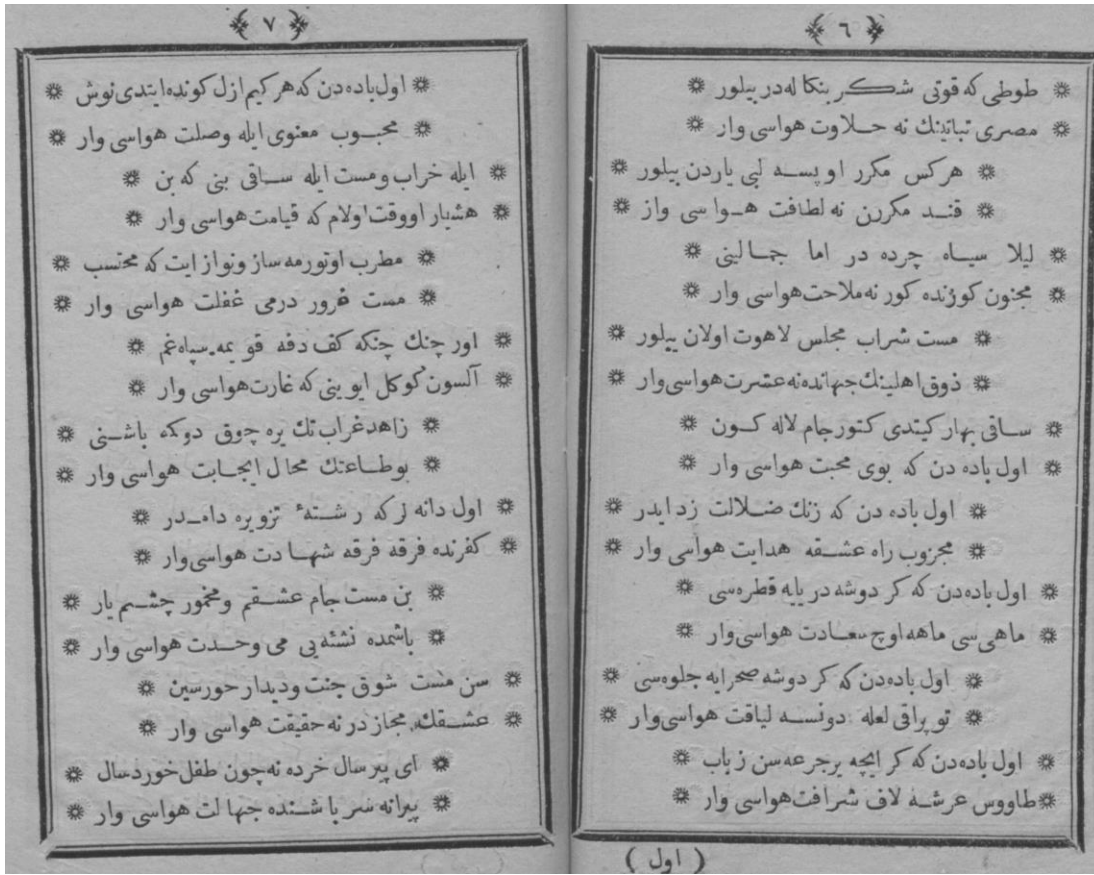 ﴿ ٦ ﴾
طوطی که قوتی شکر بنکاله در بیلور
مصری نباتینك نه حلاوت هواسی وار
هرکس مکرر اوپسه لبی یاردن بیلور
قند مکررن نه لطافت هواسی واز
لیلا سیاه چرده در اما جمالینی
مجنون کوزنده کور نه ملاحت هواسی وار
مست شراب مجلس لاهوت اولان بیلور
ذوق اهلینك جهانده نه عشرت هواسی وار
ساقی بهار کیتدی کتور جام لاله کون
اول باده دن که بوی محبت هواسی وار
اول باده دن که زنك ضلالت زدایدر
مجزوب راه عشقه هدایت هواسی وار
اول باده دن که کر دوشه دریایه قطره سی
ماهی سی ماهه اوج سعادت هواسی وار
اول باده دن که کر دوشه صحرایه جلوه سی
توپراقی لعله دونسه لیاقت هواسی وار
اول باده دن که کر ایچه بر جرعه سن زباب
طاووس عرشه لاف شرافت هواسی وار
( اول )
﴿ ٧ ﴾
اول باده دن که هر کیم ازل کونده ایتدی نوش
محبوب معنوی ایله وصلت هواسی وار
ایله خراب و مست ایله ساقی بنی که بن
هشیار اووقت اولام که قیامت هواسی وار
مطرب اوتورمه ساز و نواز ایت که محتسب
مست غرور درمی غفلت هواسی وار
اور چنك چنکه کف دفه قویمه سپاه غم
آلسون کوکل ایوینی که غارت هواسی وار
زاهد غراب تك یره چوق دوکه باشنی
بو طاعتك محال ایجابت هواسی وار
اول دانه لر که رشتهٔ تزویره دامدر
کفرنده فرقه فرقه شهادت هواسی وار
بن مست جام عشقم و مخمور چشم یار
باشمده نشئه یی می وحدت هواسی وار
سن مست شوق جنت و دیدار حورسین
عشقك مجاز در نه حقیقت هواسی وار
ای پیر سال خرده نه چون طفل خوردسال
پیرانه سر باشنده جهالت هواسی وار